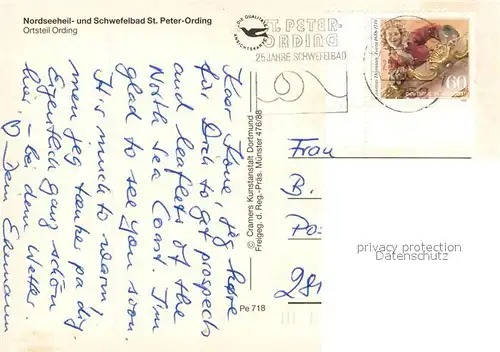 Nordseeheil- und Schwefelbad St. Peter-Ording
Ortsteil Ording
DIE QUALITÄTS
ANSICHTSKARTE
ST. PETER-
ORDING
25 JAHRE SCHWEFELBAD
60
Kære Kone, jeg
für Dich to get prospects
and leaflets of the
North Sea Coast. I'm
glad to see you soon.
It's much to warm
men jeg tænke på dig.
Eigentlich ganz schön
hier - bei dem Wetter.
Dein Ehemann
© Cramers Kunstanstalt Dortmund
Freigeg. d. Reg.-Präs. Münster 476/88
Pe 718
Frau
B.
Po
281
privacy protection
Datenschutz